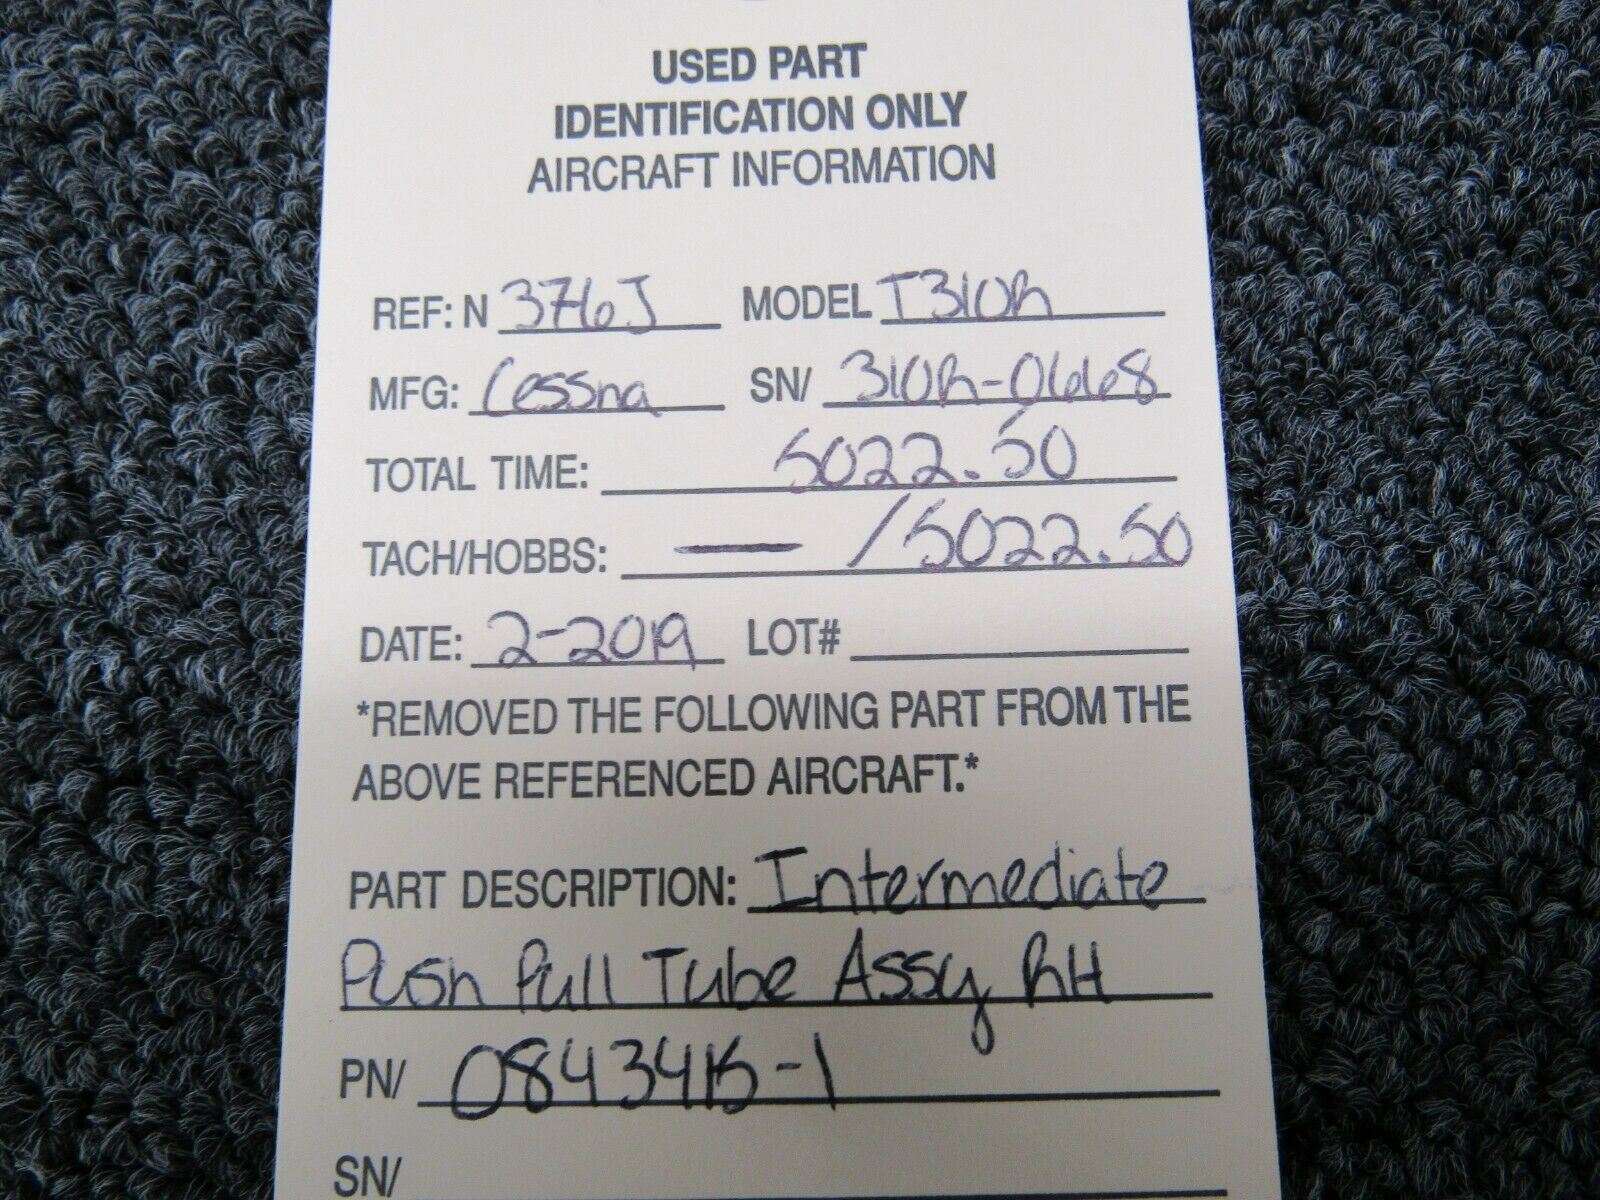 USED PART
IDENTIFICATION ONLY
AIRCRAFT INFORMATION
REF: N 376J MODEL T310R
MFG: Cessna SN/ 310R-0668
TOTAL TIME: 5022.50
TACH/HOBBS: — /5022.50
DATE: 2-2019 LOT#
*REMOVED THE FOLLOWING PART FROM THE
ABOVE REFERENCED AIRCRAFT.*
PART DESCRIPTION: Intermediate
Push Pull Tube Assy RH
PN/ 0843415-1
SN/